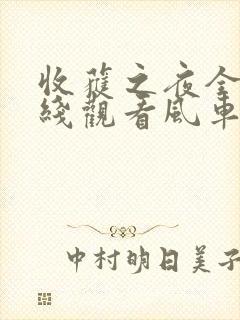 收蘿之夜全
綫觀看風車
中村明日美子